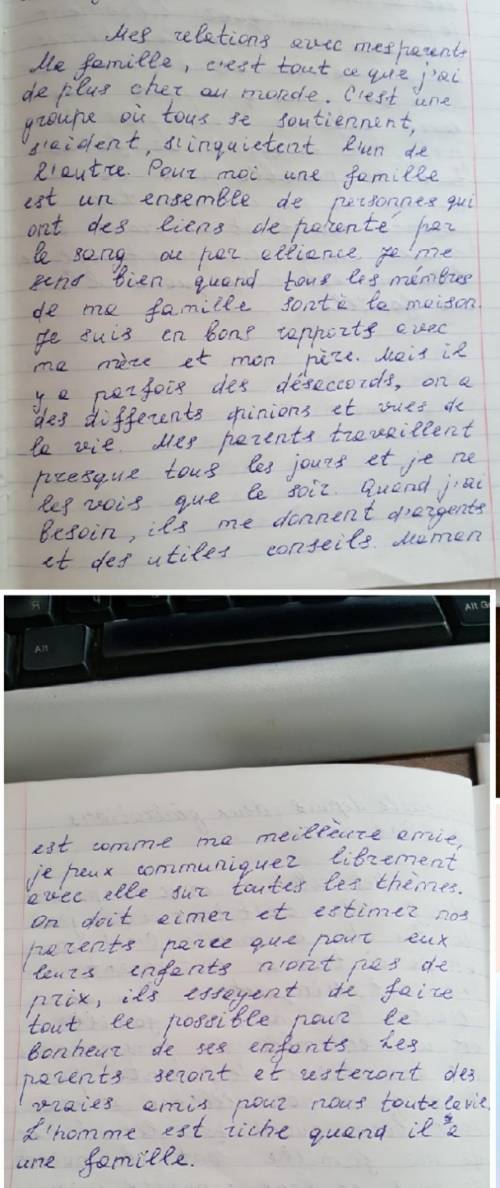 Mes relations avec mes parents
Ma famille, c'est tout ce que j'ai
de plus cher au monde. C'est une
groupe où tous se soutiennent,
s'aident, s'inquietent l'un de
l'autre. Pour moi une famille
est un ensemble de personnes qui
ont des liens de parenté par
le sang ou par alliance. Je me
sens bien quand tous les mémbres
de ma famille sont à la maison.
Je suis en bons rapports avec
ma mère et mon père. Mais il
y a parfois des désaccords, on a
des differents opinions et vues de
la vie. Mes parents travaillent
presque tous les jours et je ne
les vois que le soir. Quand j'ai
besoin, ils me donnent d'argents
et des utiles conseils. Maman
Alt
Alt Gr
est comme ma meillèure amie,
je peux communiquer librement
avec elle sur toutes les thèmes.
On doit aimer et estimer nos
parents parce que pour eux
leurs enfants n'ont pas de
prix, ils essayent de faire
tout le possible pour le
bonheur de ses enfants. Les
parents seront et resteront des
vraies amis pour nous toute la vie.
L'homme est riche quand il a
une famille.